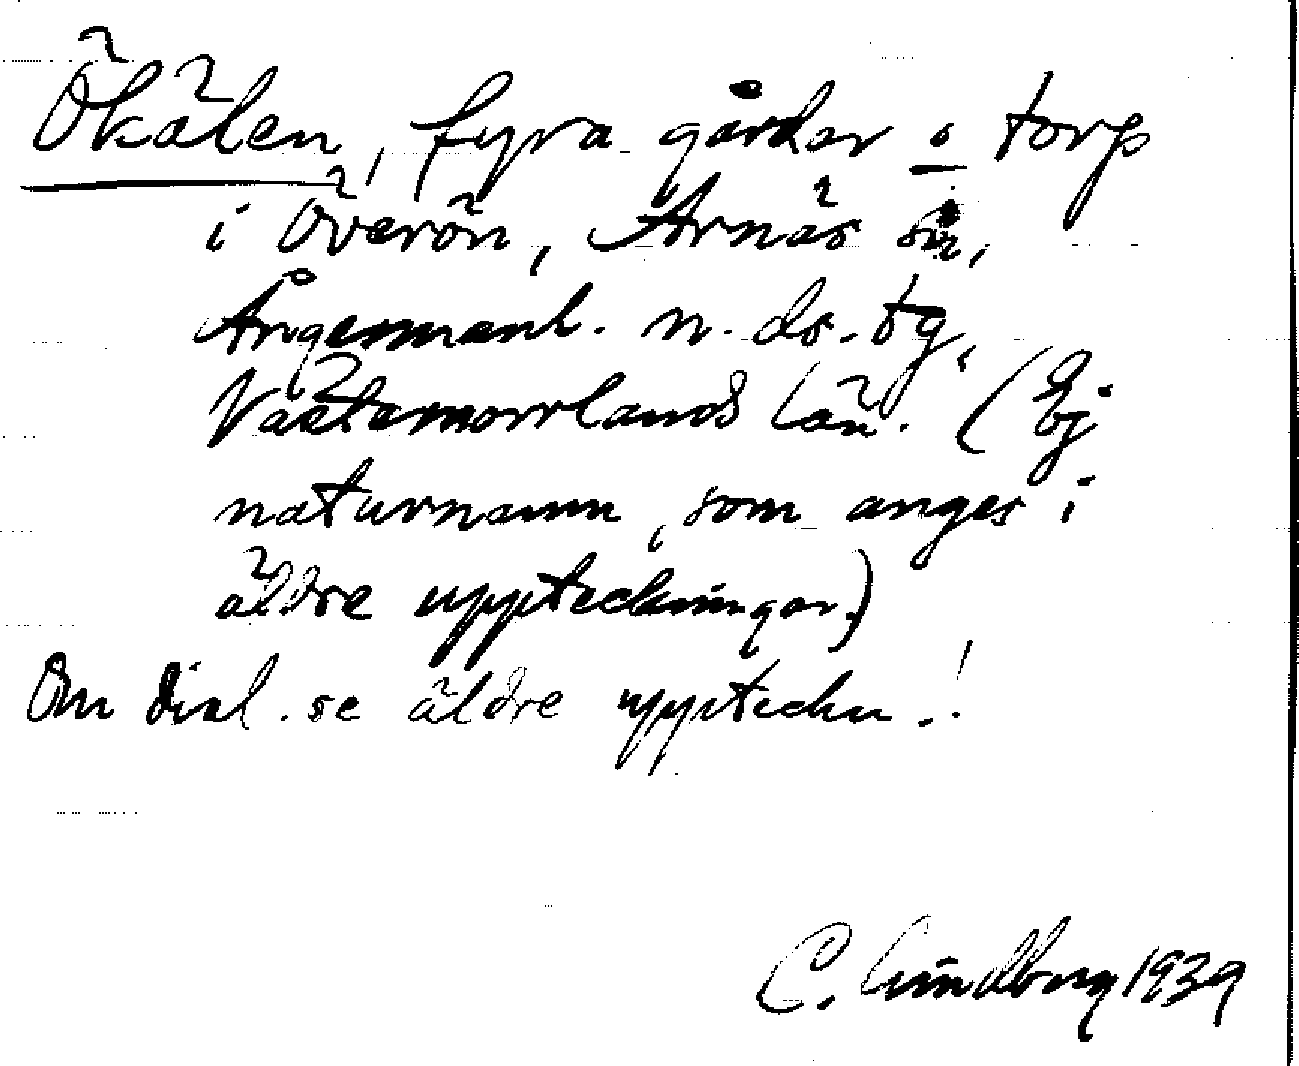 Ökälen, fyra gårdar o torp
i Överön, Arnäs sn,
Ångermanl. n. ds. tg,
Västernorrlands län. (Ej
naturnamn, som anges i
äldre uppteckningar.)
Om dial. se äldre uppteckn.!
C. Lindberg 1939